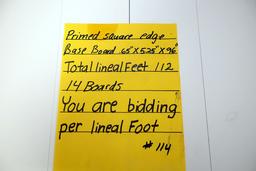 Primed square edge
Base Board .65" X 5.25" X 96"
Total lineal Feet 112
14 Boards
You are bidding
per lineal Foot
# 114